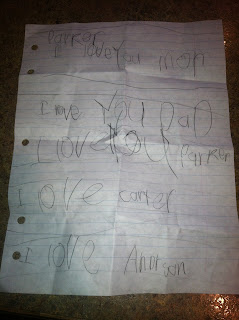 Parker
I love you mom
I love you Dad
I love you Parker
I love carter
I love Annison